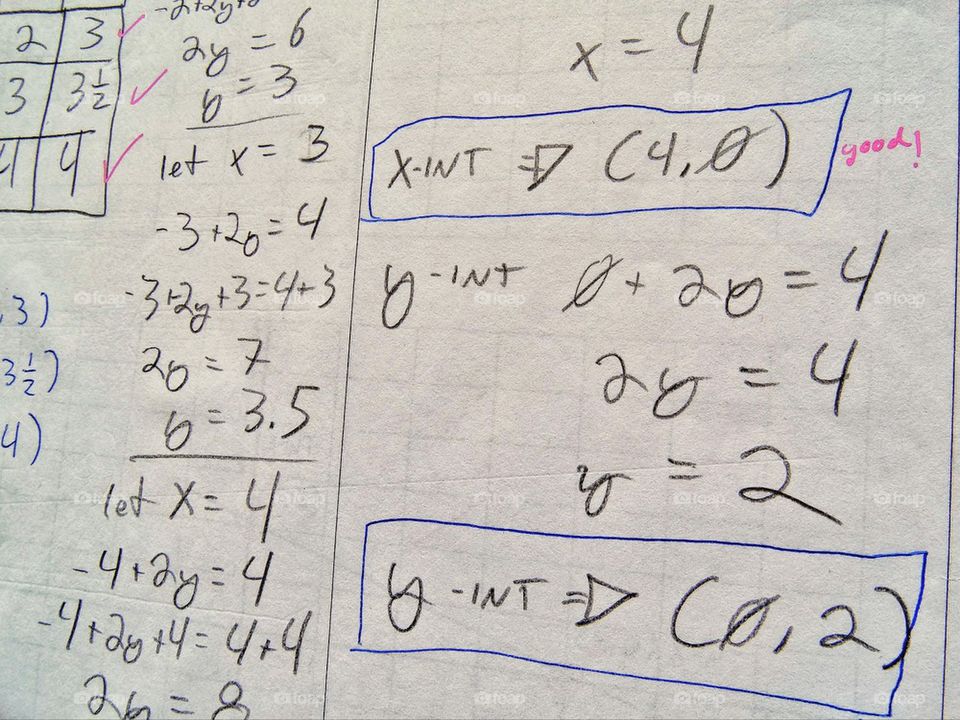 2 3
3 3 1/2
4 4
, 3)
3 1/2)
4)
-2+2y+2
2y = 6
y = 3
let x = 3
-3+2y=4
-3+2y+3=4+3
2y = 7
y = 3.5
let x = 4
-4+2y=4
-4+2y+4=4+4
2y = 8
x = 4
x-INT ⇒ (4,0)
good!
y-INT 0+2y=4
2y = 4
y = 2
y-INT ⇒ (0,2)